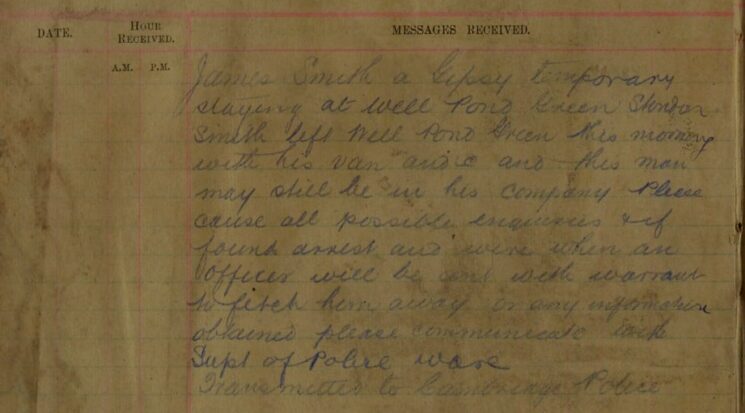 DATE.
HOUR RECEIVED.
MESSAGES RECEIVED.
A.M. P.M.
James Smith a Gipsy temporary
staying at Well Pond Green Standon
Smith left Well Pond Green this morning
with his van and c and this man
may still be in his company Please
cause all possible enquiries & if
found arrest and wire when an
Officer will be sent with warrant
to fetch him away or any information
obtained please communicate with
Supt of Police Ware
Transmitted to Cambridge Police